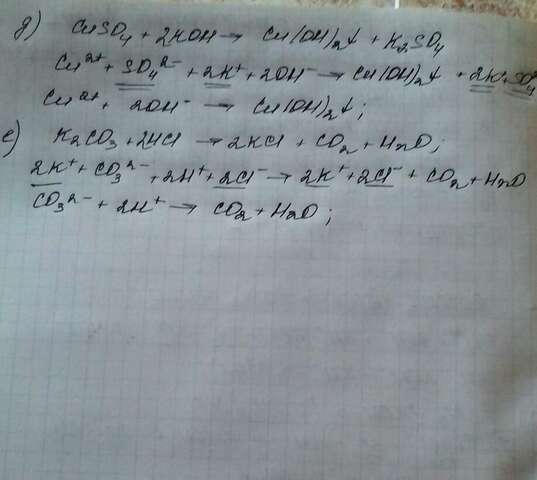 д) CuSO₄ + 2KOH → Cu(OH)₂↓ + K₂SO₄
Cu²⁺ + SO₄²⁻ + 2K⁺ + 2OH⁻ → Cu(OH)₂↓ + 2K⁺ SO₄
Cu²⁺ + 2OH⁻ → Cu(OH)₂↓;
е) K₂CO₃ + 2HCl → 2KCl + CO₂ + H₂O;
2K⁺ + CO₃²⁻ + 2H⁺ + 2Cl⁻ → 2K⁺ + 2Cl⁻ + CO₂ + H₂O
CO₃²⁻ + 2H⁺ → CO₂ + H₂O;